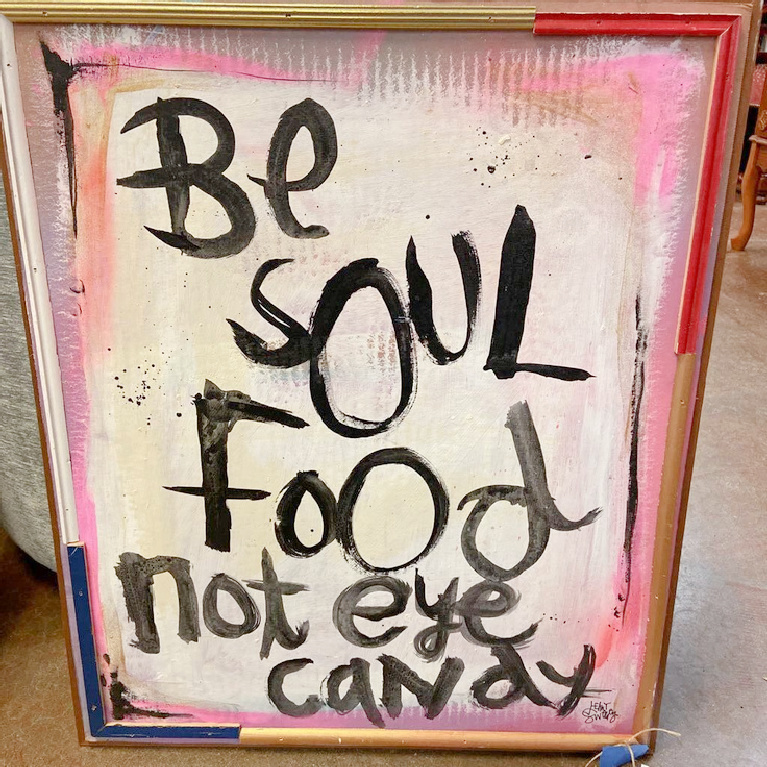 Be
SOUL
Food
not eye
caNdy